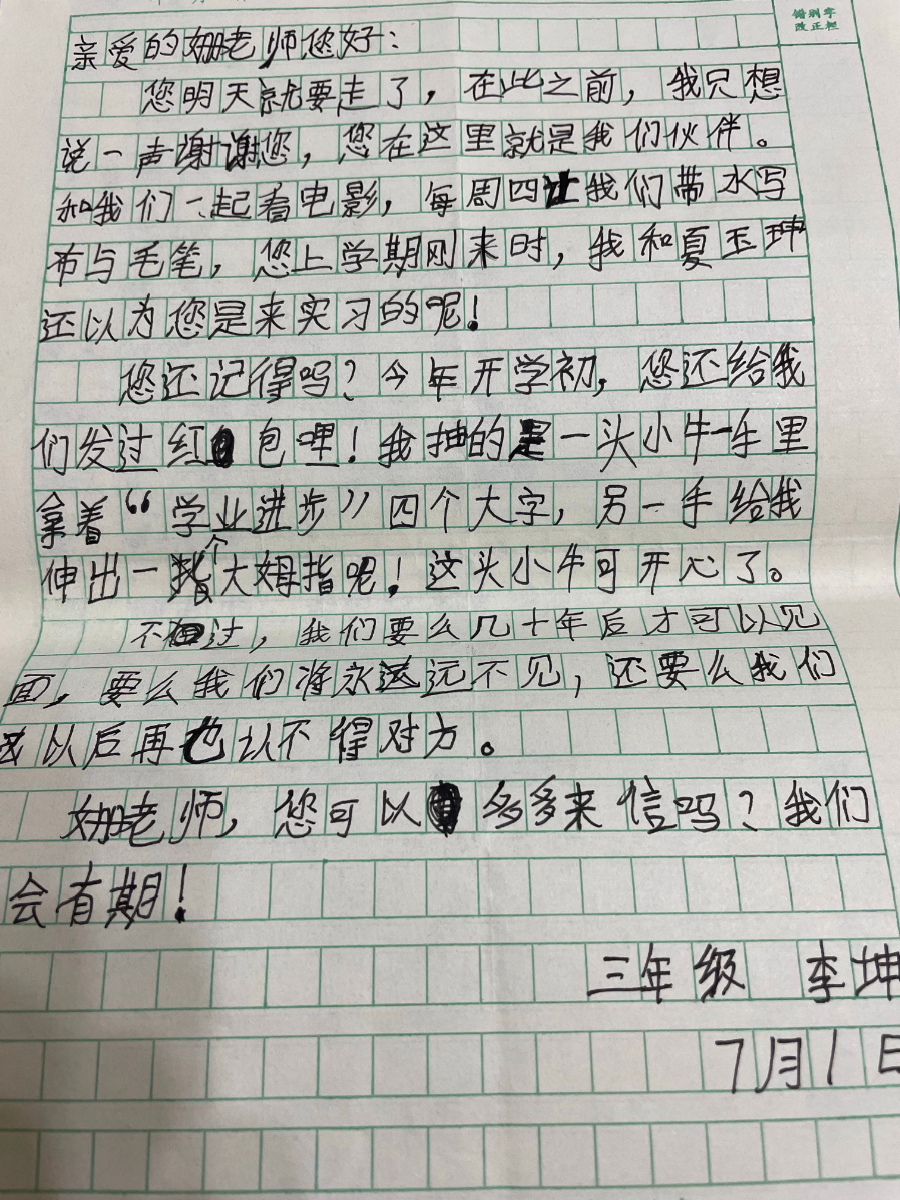 错别字
改正栏
亲爱的姗老师您好：
您明天就要走了，在此之前，我只想
说一声谢谢您，您在这里就是我们伙伴。
和我们一起看电影，每周四让我们带水写
布与毛笔，您上学期刚来时，我和夏玉珅
还以为您是来实习的呢！
您还记得吗？今年开学初，您还给我
们发过红包哩！我抽的是一头小牛一手里
拿着“学业进步”四个大字，另一手给我
伸出一个大姆指呢！这头小牛可开心了。
不过，我们要么几十年后才可以见
面，要么我们将永远不见，还要么我们
以后再也认不得对方。
姗老师，您可以多多来信吗？我们
会有期！
三年级 李坤
7月1日